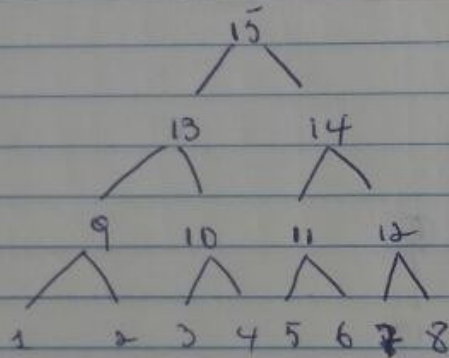 15
13 14
9 10 11 12
1 2 3 4 5 6 7 8